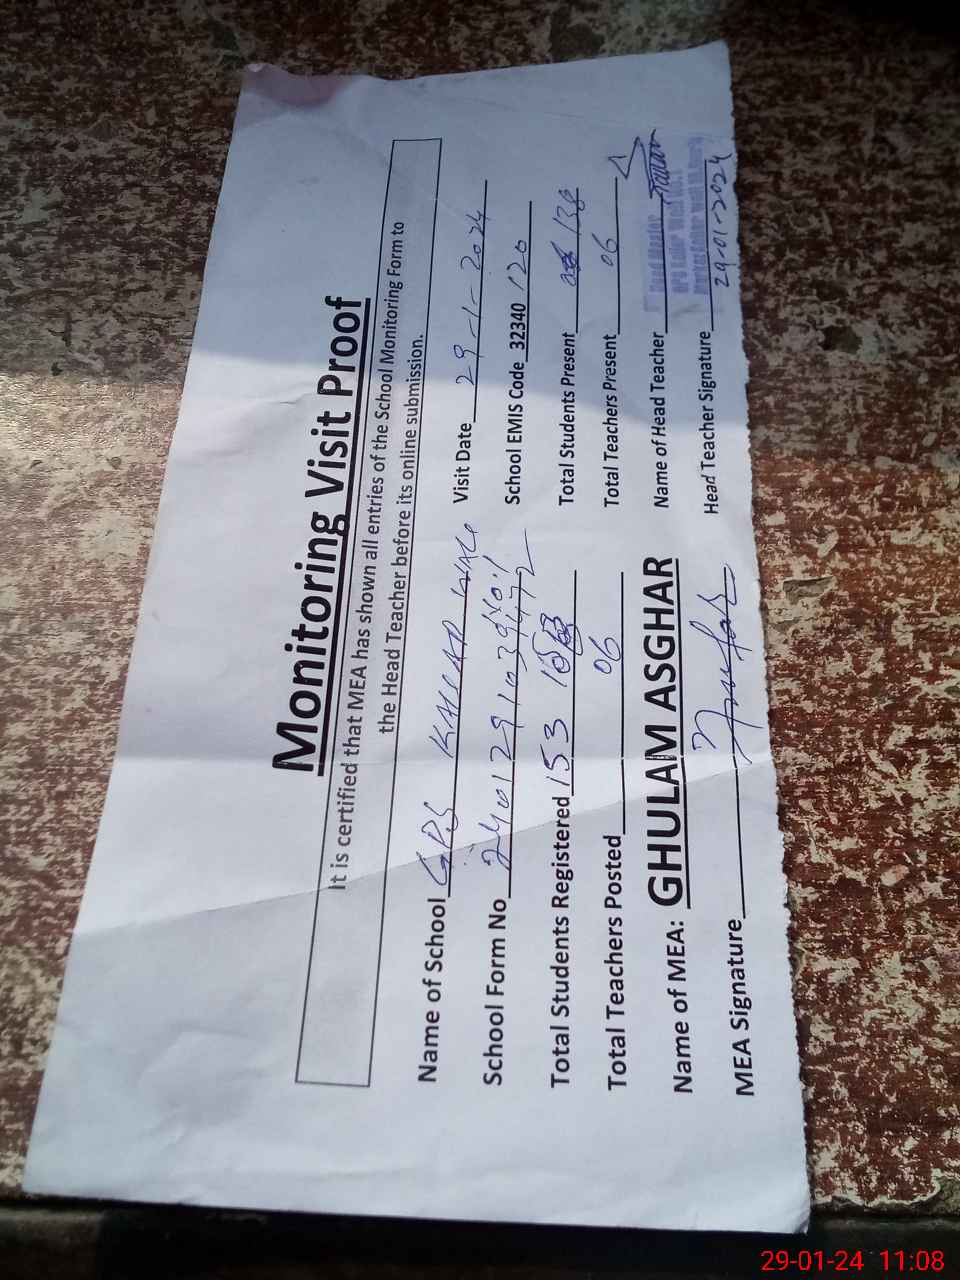 Monitoring Visit Proof
It is certified that MEA has shown all entries of the School Monitoring Form to
the Head Teacher before its online submission.
Name of School GPS Wala Visit Date 29-1-2024
School Form No School EMIS Code 32340 120
Total Students Registered 153 Total Students Present 138
Total Teachers Posted 06 Total Teachers Present 06
Name of MEA: GHULAM ASGHAR Name of Head Teacher
Head Master
MEA Signature Head Teacher Signature
29-01-2024
29-01-24 11:08